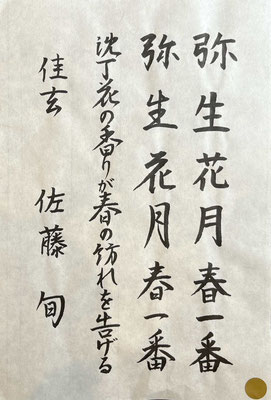 弥生花月春一番
弥生花月春一番
沈丁花の香りが春の訪れを告げる
佳玄 佐藤旬